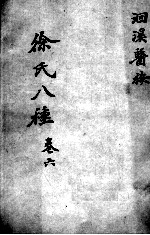 洄溪醫案
徐氏八種
卷六